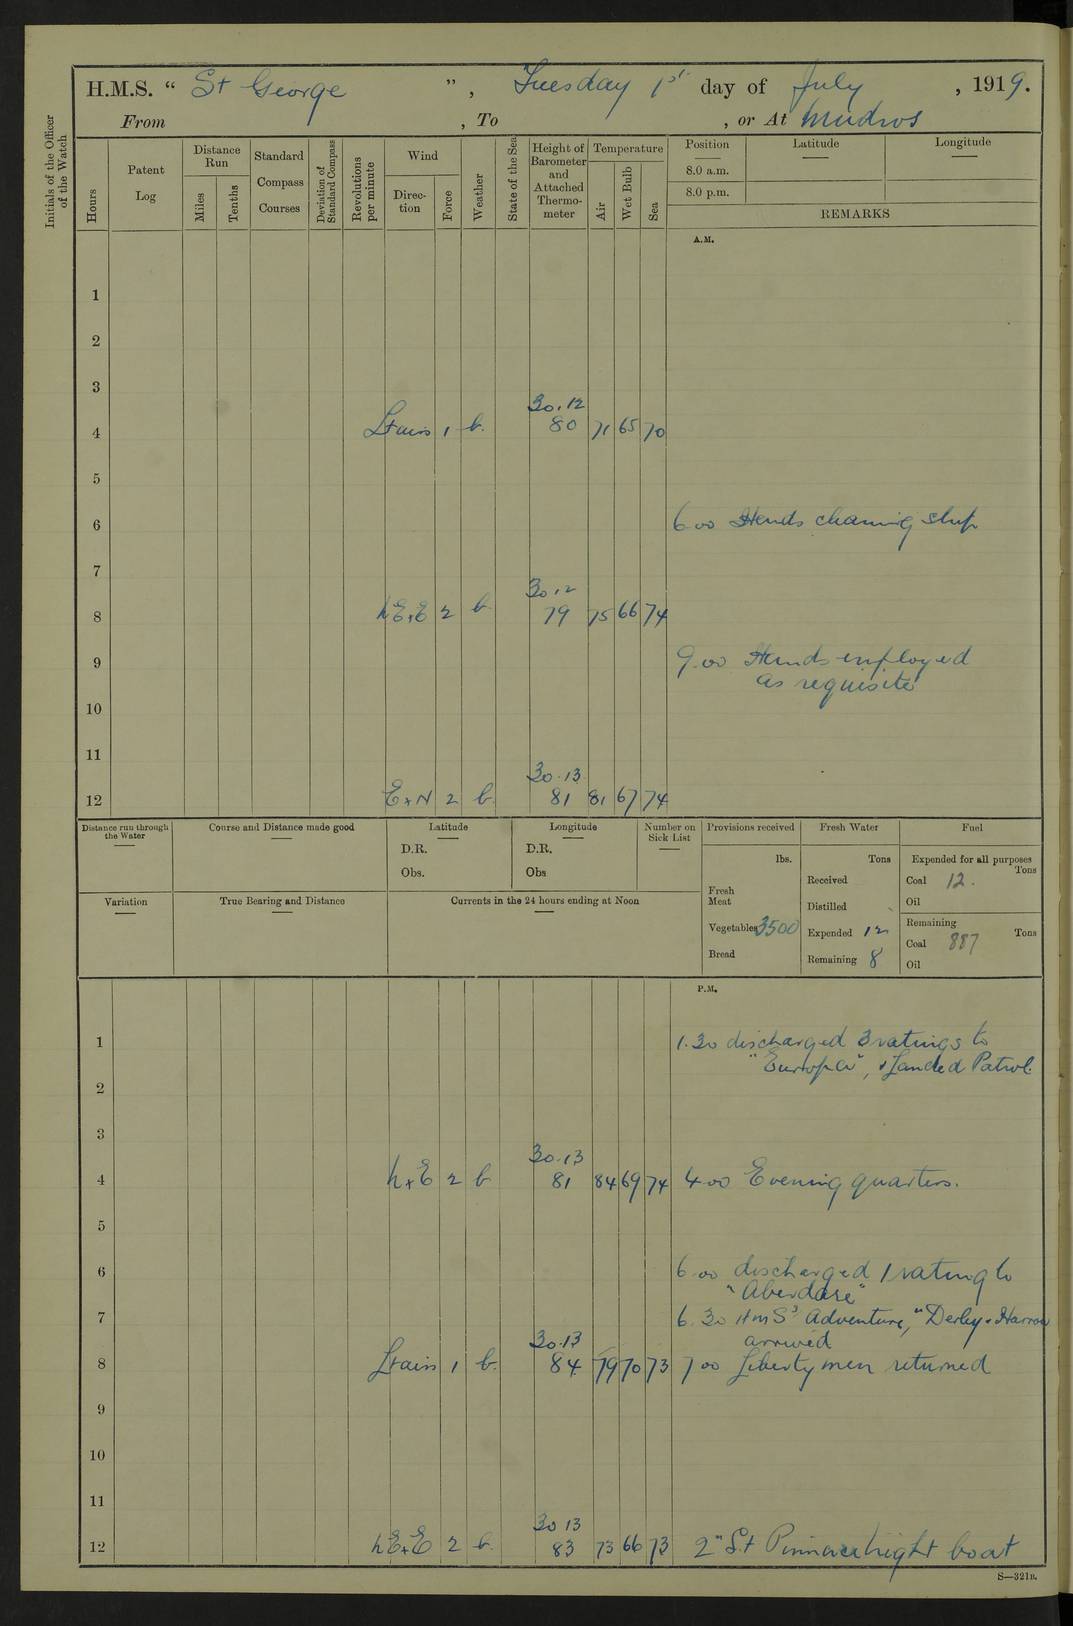 H.M.S. “ St George ” , Tuesday 1st day of July , 1919.
From , To , or At Mudros
Initials of the Officer of the Watch
Hours
Patent Log
Distance Run
Miles
Tenths
Standard Compass Courses
Deviation of Standard Compass
Revolutions per minute
Wind
Direc-tion
Force
Weather
State of the Sea
Height of Barometer and Attached Thermo-meter
Temperature
Air
Wet Bulb
Sea
Position Latitude Longitude
8.0 a.m.
8.0 p.m.
REMARKS
A.M.
1
2
3
30.12
4 Ltairs 1 b. 80 71 65 70
5
6 6.00 Hands cleaning ship
7
30.12
8 NE+E 2 b 79 75 66 74
9 9.00 Hands employed
as requisite
10
11
30.13
12 E+N 2 b. 81 81 67 74
Distance run through the Water
Course and Distance made good
Latitude
D.R.
Obs.
Longitude
D.R.
Obs
Number on Sick List
Provisions received
lbs.
Fresh Meat
Vegetables 3500
Bread
Fresh Water
Tons
Received
Distilled
Expended 12
Remaining 8
Fuel
Expended for all purposes
Tons
Coal 12.
Oil
Remaining
Tons
Coal 887
Oil
Variation
True Bearing and Distance
Currents in the 24 hours ending at Noon
P.M.
1 1.30 discharged 3 ratings to
"Europa", & Landed Patrol.
2
3
30.13
4 N+E 2 b 81 84 69 74 4.00 Evening quarters.
5
6 6.00 discharged 1 rating to
"Aberdare"
7 6.30 HMS's Adventure," Derby & Harrow
30.13 arrived
8 Ltairs 1 b. 84 79 70 73 7.00 Liberty men returned
9
10
11
30 13
12 NE+E 2 b. 83 73 66 73 2" St Pinnace night boat
S—321B.